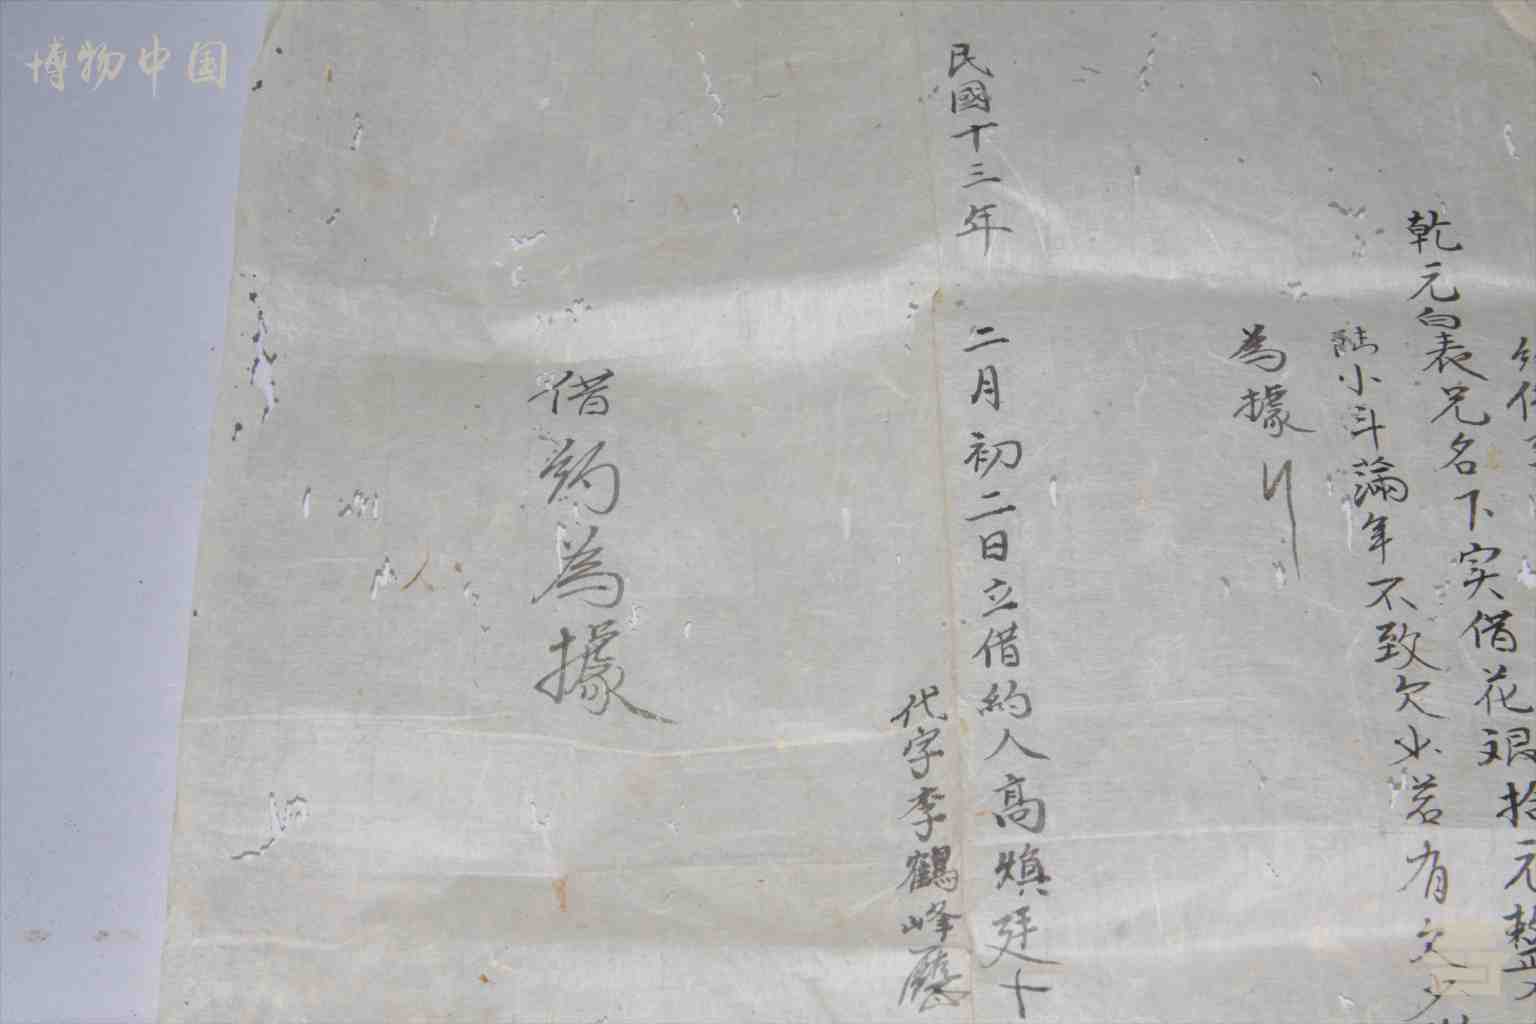 乾元白表兄名下实借花艮拾元整
陆小斗滿年不致欠少若有欠少
為據
民國十三年二月初二日立借約人高煥廷十
代字李鶴峰
借約為據
博物中国